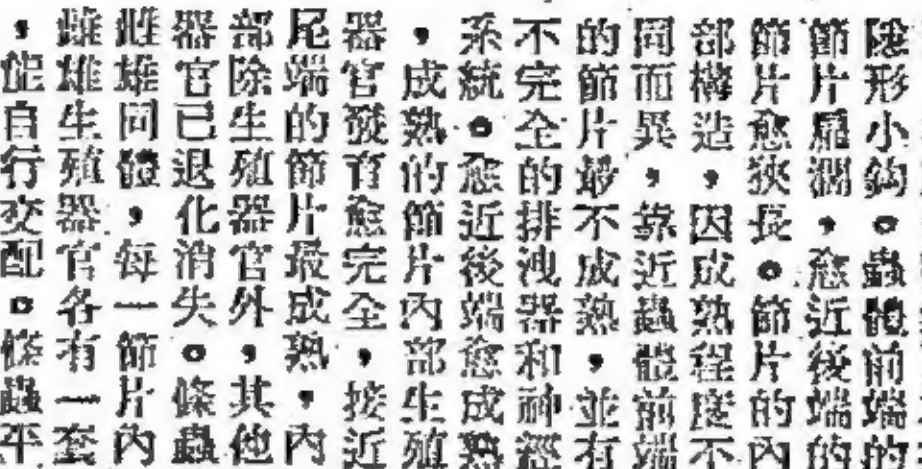 隱形小鉤。蟲體前端的
節片扁濶，愈近後端的
節片愈狹長。節片的內
部構造，因成熟程度不
同而異，靠近蟲體前端
的節片最不成熟，並有
不完全的排洩器和神經
系統。愈近後端愈成熟
，成熟的節片內部生殖
器官發育愈完全，接近
尾端的節片最成熟，內
部除生殖器官外，其他
器官已退化消失。條蟲
雌雄同體，每一節片內
雌雄生殖器官各有一套
，能自行交配。條蟲平